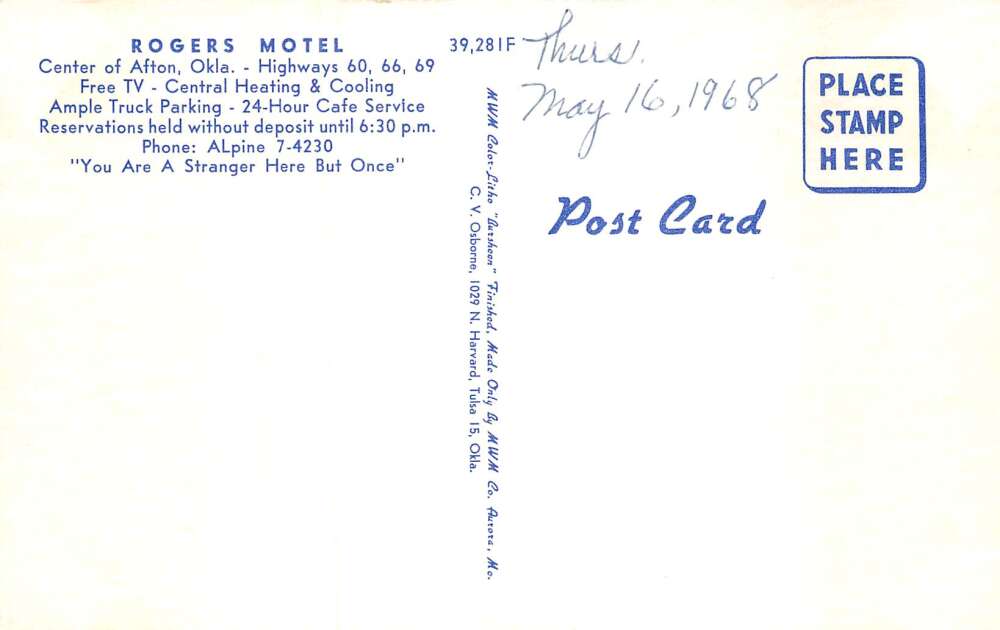 ROGERS MOTEL
Center of Afton, Okla. - Highways 60, 66, 69
Free TV - Central Heating & Cooling
Ample Truck Parking - 24-Hour Cafe Service
Reservations held without deposit until 6:30 p.m.
Phone: ALpine 7-4230
"You Are A Stranger Here But Once"
39,281F
MWM Color-Litho "Aursheen" Finished, Made Only By MWM Co. Aurora, Mo.
C. V. Osborne, 1029 N. Harvard, Tulsa 15, Okla.
Thurs.
May 16, 1968
Post Card
PLACE
STAMP
HERE